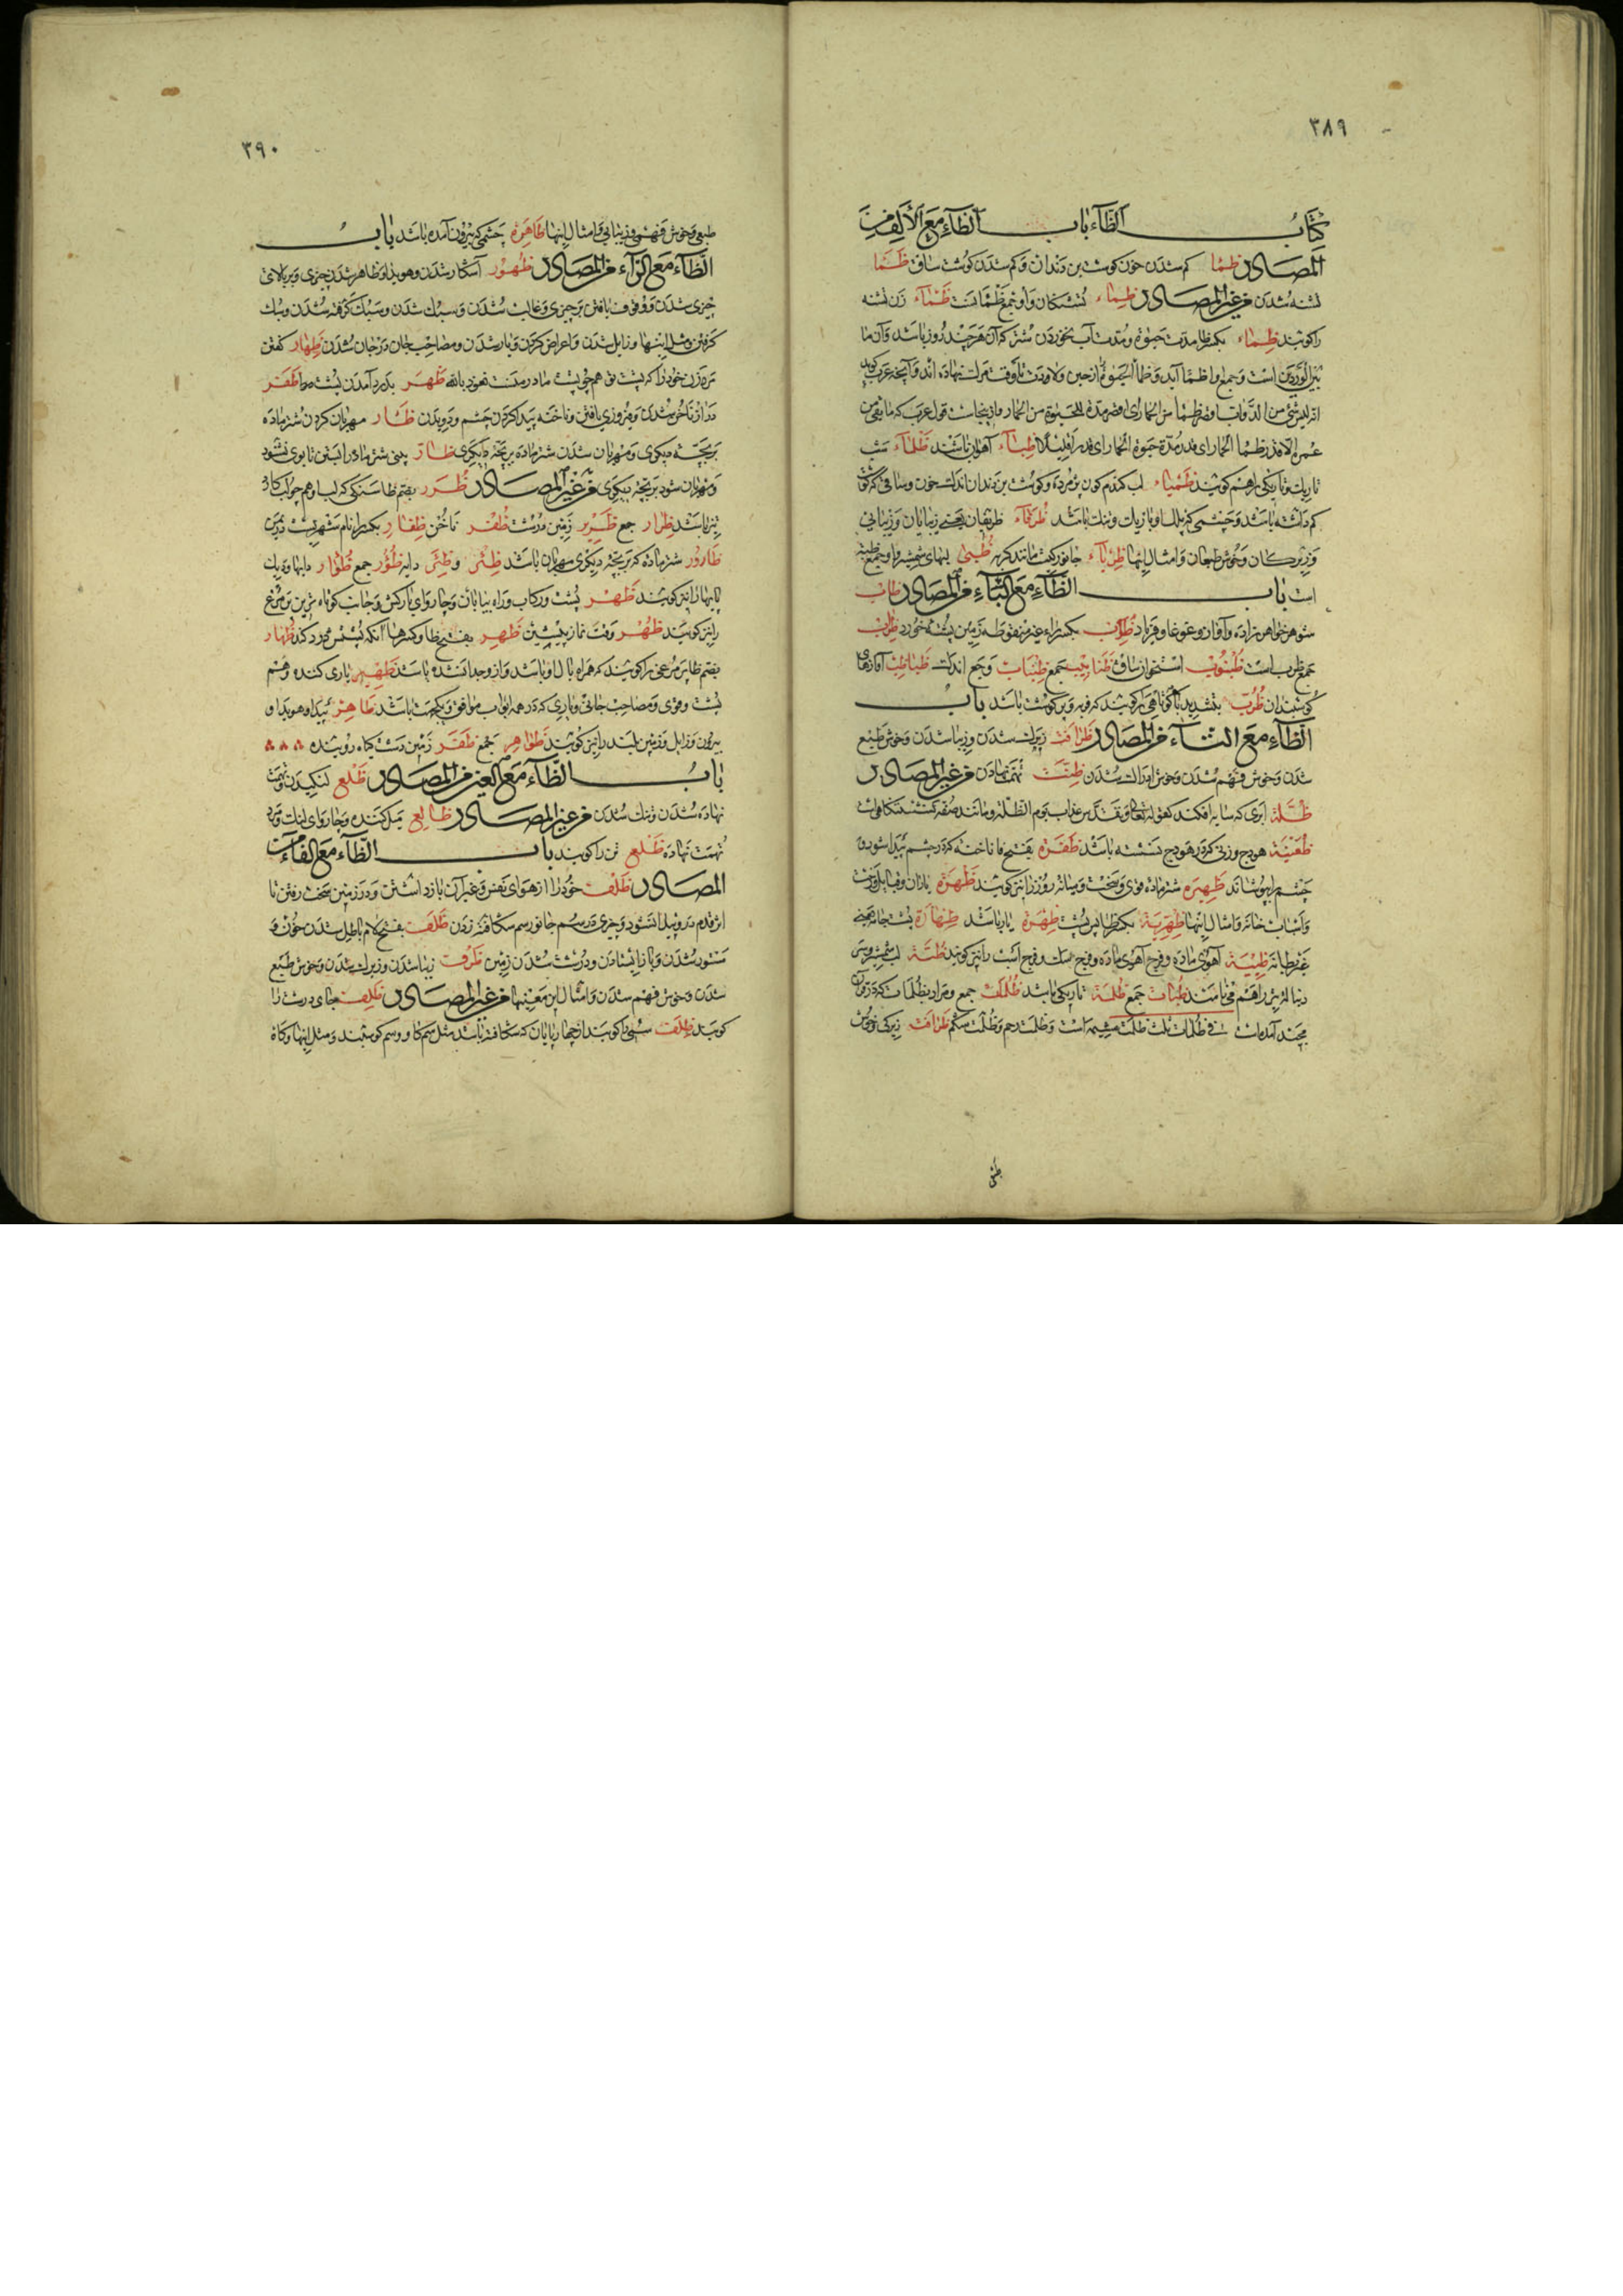 ۳۸۹
کتاب الظاء باب الظاء مع الألف من
المصادر ظما کم شدن خون کوشت بن دندان و کم شدن کوشت ساق ظما
تشنه شدن من غیر المصادر ظماء تشنکان و او جمع ظمآنست ظمآء زن تشنه
را کویند ظماء بکسر ظا مدت حیوة و مدت آب نخوردن شتر که آن هر چند روز باشد و آن ما
بین الوردین است و جمع او اظما آید
عمره الا قدر ظما الحمار ای قدر مدة حیوة الحمار ای قدرا قلیلا ظباء آهوان باشند ظلماء شب
تاریک و تاریکی را هم کویند ظمیاء لب کندم کون پژمرده و کوشت بن دندان اندک خون و ساقی که کوشت
کم داشته باشد و چشمی که پلک او باریک و تنک باشد ظرفاء ظریفان یعنی زیبایان و زیبائی
و زیرکان و خوش طبعان و امثال اینها ظرباء جانورکیست مانند کربه ظبی لبهای شمشیر و او جمع ظبة
است باب الظاء مع الباء من المصادر ظاب
شوهر خواهر زاده و آواز و غوغا و فریاد ظرب بکسر راء غیر منقوطه زمین پشته خورد ظراب
جمع ظرب است ظنبوب استخوان ساق ظنابیب جمع ظبظاب وجع اندک ظباظب آوازهای
کوسبندان ظرب بتشدید با کوتاهی را کویند که فربه و پر کوشت باشد باب
الظاء مع التاء من المصادر ظرافت زیرک شدن و زیبا شدن و خوش طبع
شدن و خوش فهم شدن و خوش ادراک شدن ظنت تهمت نهادن من غیر المصادر
ظلة ابری که سایه افکند کقوله تعالی و تقدس عذاب یوم الظلة و مانند صفه که نشستنکاهی است
ظعینة هودج و زنی که در هودج نشسته باشد ظفرة بفتح فا ناخنه که در چشم پیدا شود و
چشم را بپوشاند ظهیره شتر ماده قوی و سخت و میانه روز را نیز کویند ظهرة یاران و قبا
و اسباب خانه و امثال اینها ظهریة بکسر ظا پس پشت ظهرة یار باشد ظهارة پشت جامه یعنی
غیر بطانة ظبیة آهوی ماده و فرج آهوی ماده و فرج سک و فرج اسب را نیز کویند ظبة لب شمشیر و سر
دنباله تیر را هم ظبات جمع ظلمة تاریکی باشد ظلمات جمع و مراد بظلمات که در قرآن
مجید آمده است فی ظلمات ثلث ظلمت مشیمه است و ظلمت رحم و ظلمت شکم ظرافت زیرکی و خوش
طبعی
۳۹۰
طبعی و خوش فهمی و زیبائی و امثال اینها ظاهرة چشمی که بیرون آمده باشد باب
الظاء مع الراء من المصادر ظهور آشکار شدن و هویدا و ظاهر شدن چیزی و بر بالای
چیزی شدن و وقوف یافتن بر چیزی و غالب شدن و سبک شدن و سبک کرفته شدن و سبک
کرفتن و مثل اینها و زایل شدن و اعراض کردن و یار شدن و مصاحب جان در جان شدن ظهار کفتن
مرد زن خود را که پشت تو هم چو پشت مادر منست نعوذ بالله ظهر بدرد آمدن پشت ظفر
دراز ناخن شدن و فیروزی یافتن و ناخنه پیدا کردن چشم و دویدن ظأر مهربان کردن شتر ماده
بر بچه دیکری و مهربان شدن شتر ماده بر بچه دیکری ظأر
و مهربان شود بر بچه دیکری من غیر المصادر ظرر بضم ظا سنکی که لب او هم چو لب کارد
تیز باشد ظرار جمع ظریر زمین درشت ظفر ناخن ظفار بکسر را نام شهریست در یمن
ظأرور شتر ماده که بر بچه دیکری مهربان باشد ظئر و ظئر دایه ظؤر جمع ظؤار دایها و دیک
پایها را نیز کویند ظهر پشت و رکاب و راه بیابان و چاروای بارکش و جانب کوتاه ترین پر مرغ
را نیز کویند ظهر وقت نماز پیشین ظهر بفتح ظا و کسر ها آنکه پشتش درد کند ظهار
بضم ظا پر مرغی را کویند که همراه بال او باشد و از او جدا نشده باشد ظهیر یاری کننده و هم
پشت و قوی و مصاحب جانی و یاری که در همه ابواب موافق و یکجهت باشد ظاهر پیدا و هویدا و
بیرون و زایل و زمین بلند را نیز کویند ظواهر جمع ظفر زمین دشت کیاه روینده
باب الظاء مع العین من المصادر ظلع لنکیدن و تهمت
نهاده شدن و تنک شدن من غیر المصادر ظالع میل کننده و چاروای لنک و مرد
تهمت نهاده ظلع تن را کویند باب الظاء مع الفاء من
المصادر ظلف خود را از هوای نفس و غیر آن باز داشتن و در زمین سخت رفتن تا
اثر قدم در و پیدا نشود و چیزی در سم جانور سم شکافته زدن ظلف بفتح لام باطل شدن خون و
ستور شدن و باز ایستادن و درشت شدن زمین ظرف زیبا شدن و زیرک شدن و خوش طبع
شدن و خوش فهم شدن و امثال این معنیها من غیر المصادر ظلف جای درشت را
کویند ظلف سمی را کویند از چهارپایان که شکافته باشد مثل سم کاو و سم کوسبند و مثل اینها و کاه